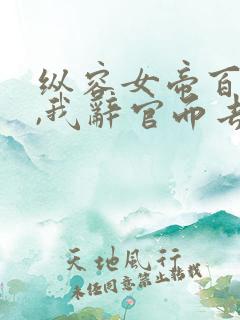 纵容女帝百
,我辞官而去
天地风行
未经同意禁止转载